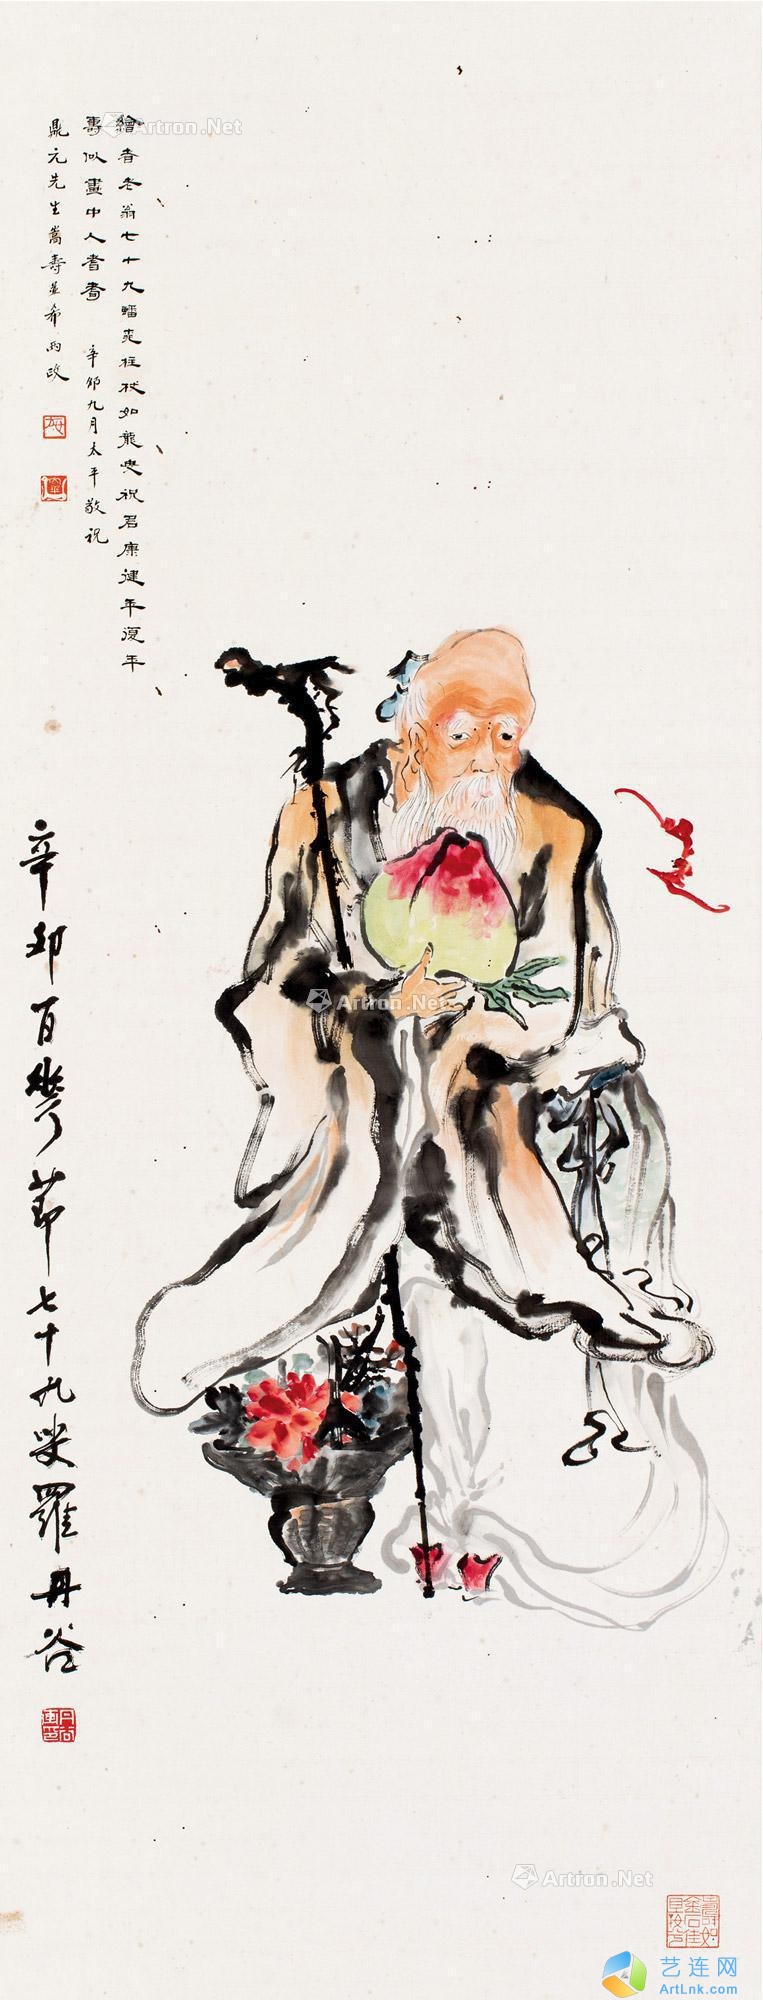 繪者老翁七十九蟠桃拄杖如龍叟祝君康健年復年
壽似畫中人耆耇 辛卯九月太平敬祝
鼎元先生嵩壽並希兩政
辛卯百花節七十九叟羅丹谷
Artron.Net
Artron.Net
Artron.Net
艺连网
ArtLnk.com